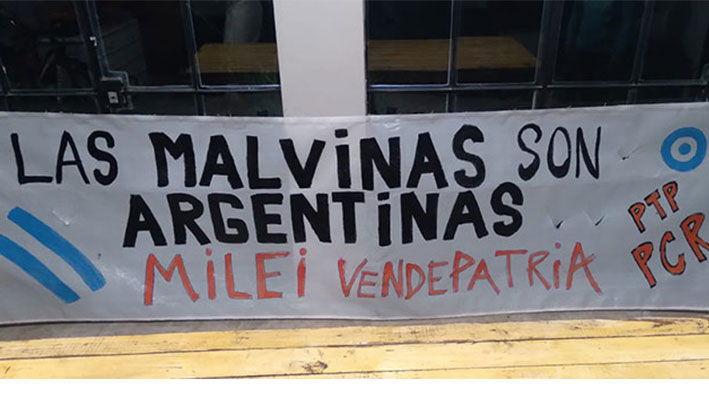 LAS MALViNAS SON
ARGENTiNAS
MiLEi VENDEPATRiA
PTP
PCR